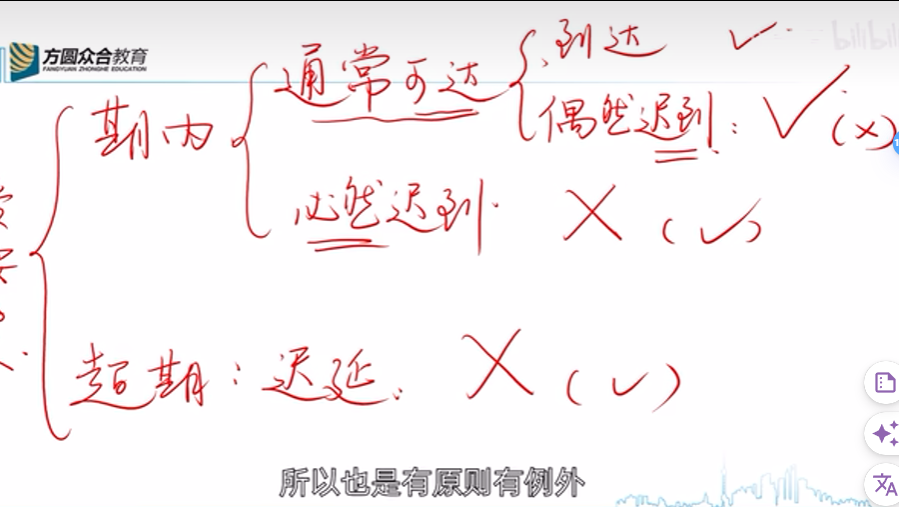 方圆众合教育
FANGYUAN ZHONGHE EDUCATION
bilibili
期内
通常可达
到达 ✓
偶然迟到：✓（×）
必然迟到 ×（✓）
超期：迟延 ×（✓）
所以也是有原则有例外